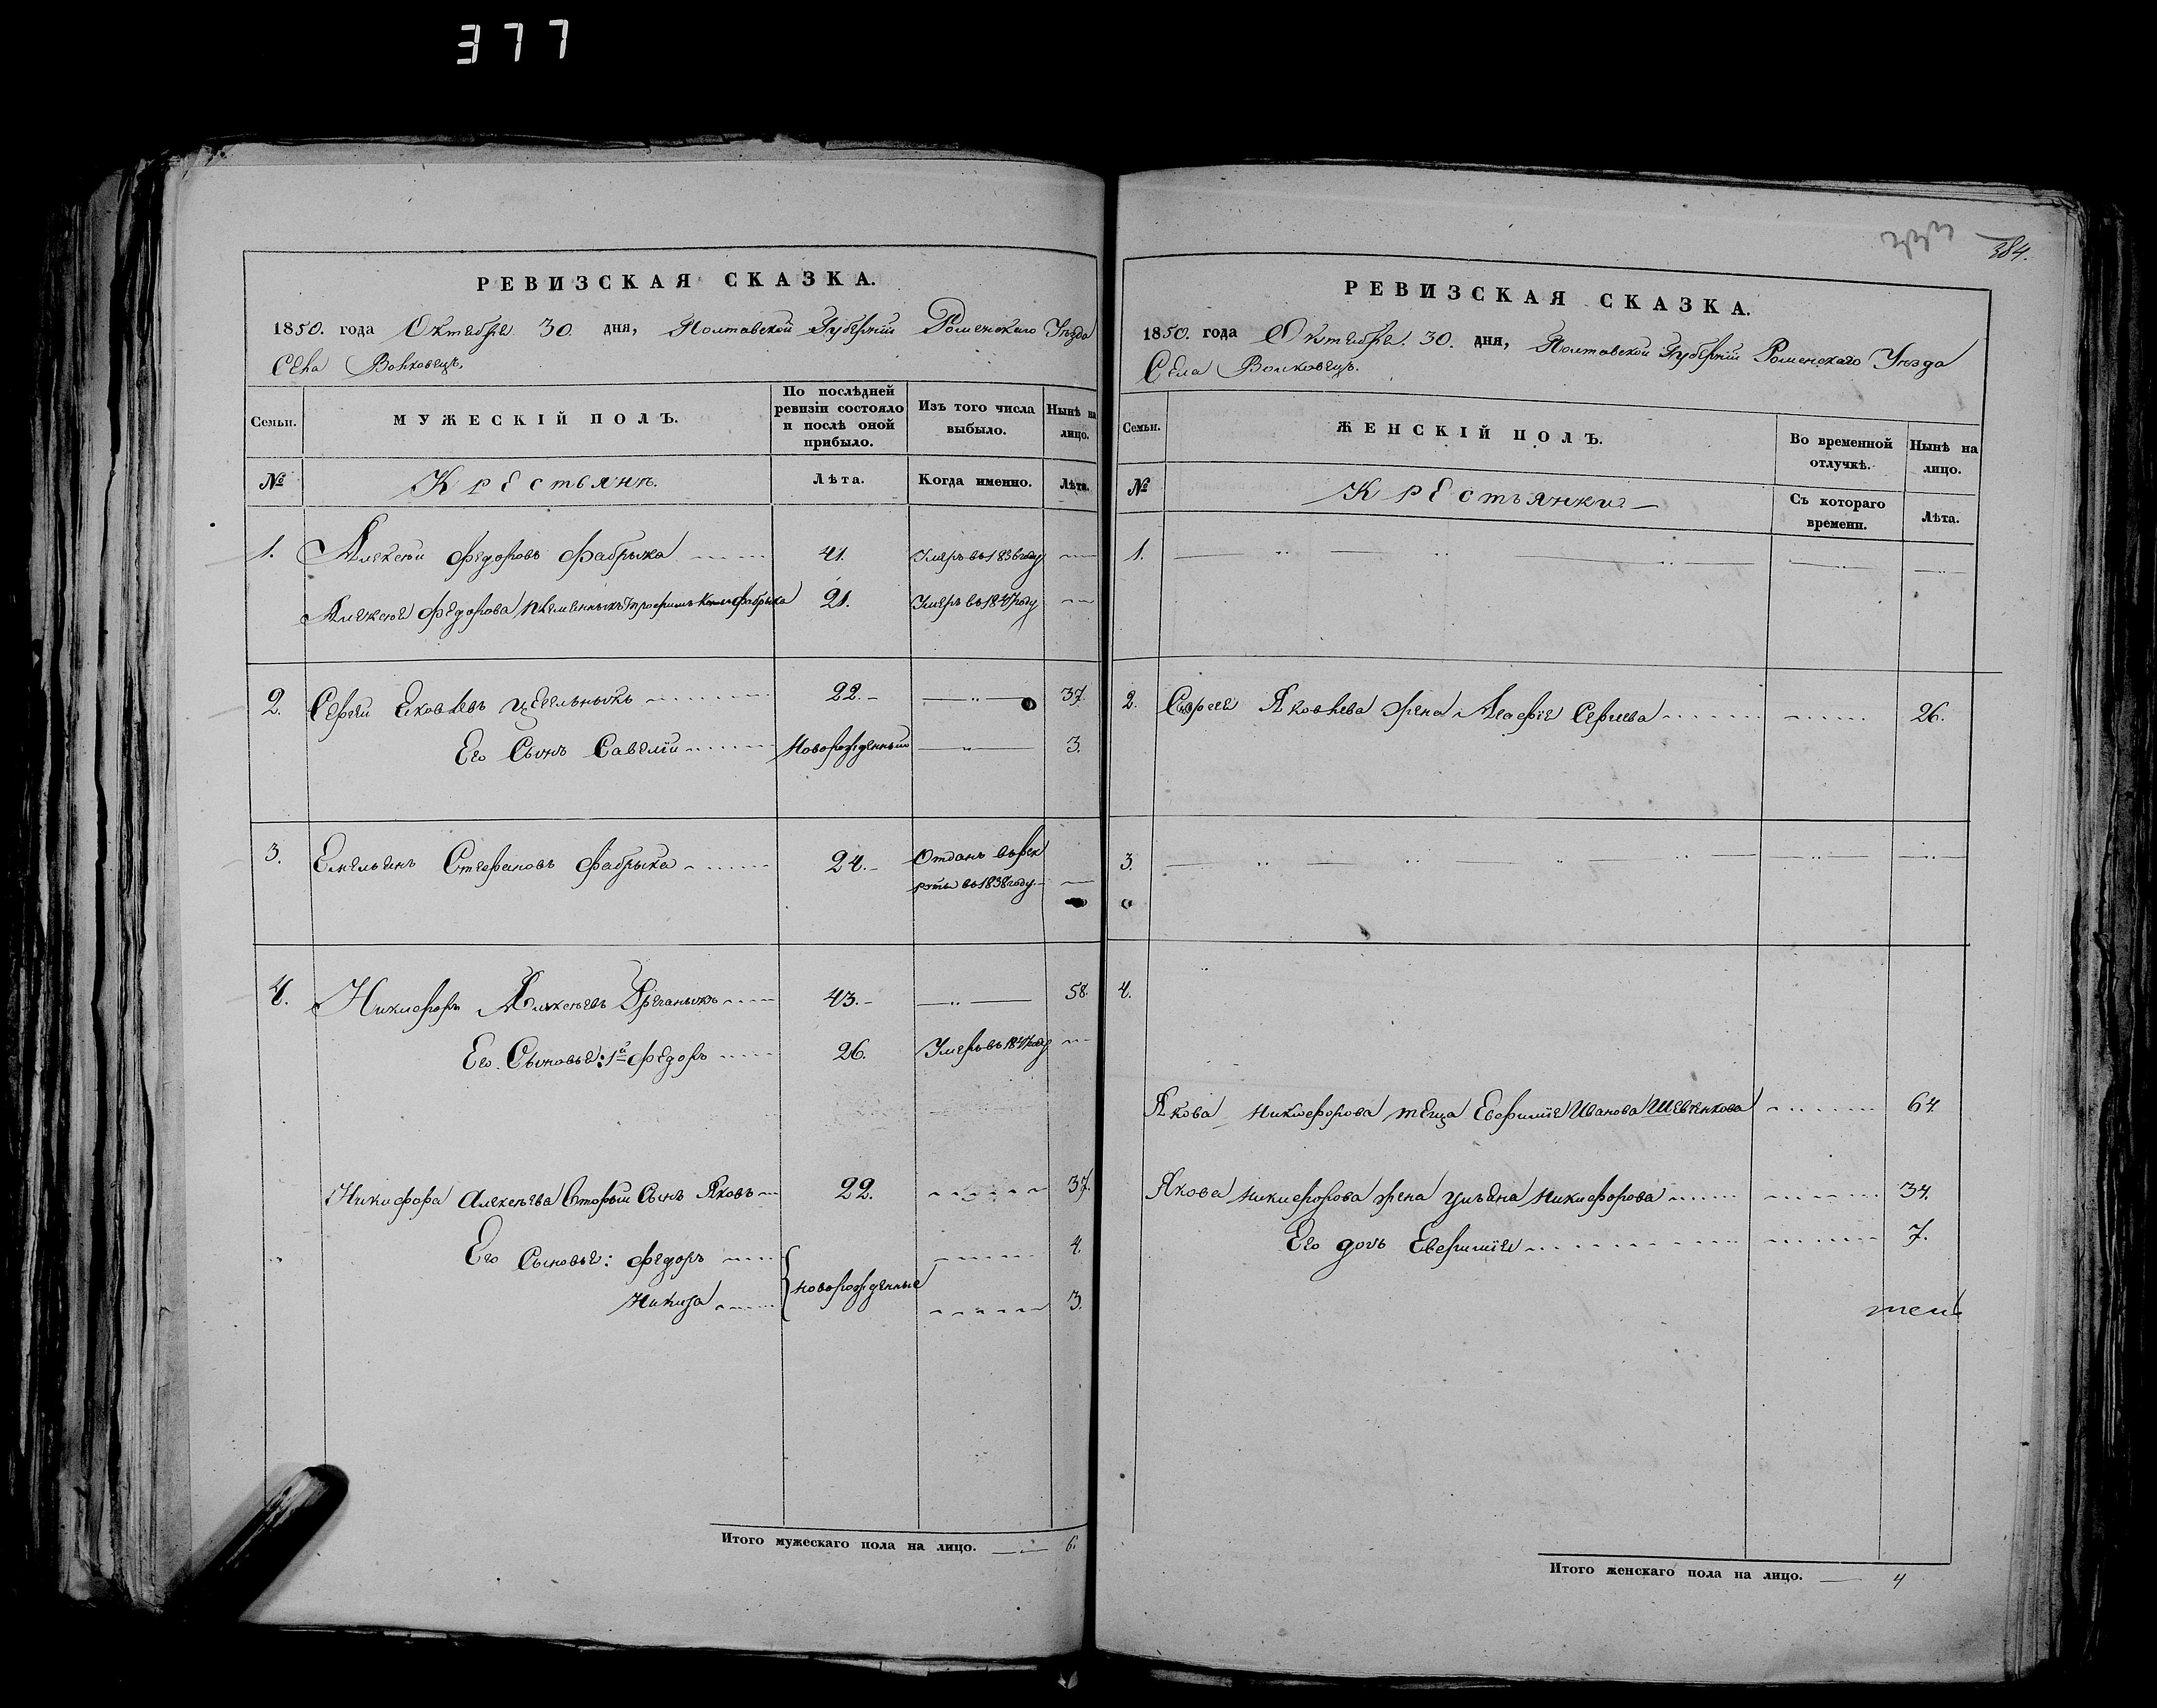 377
384.
РЕВИЗСКАЯ СКАЗКА.
1850. года Октября 30. дня, Полтавской Губерніи Роменскаго Уѣзда
Села Волковецъ,
Семьи.
МУЖЕСКІЙ ПОЛЪ.
По послѣдней ревизіи состояло и послѣ оной прибыло.
Изъ того числа выбыло.
Нынѣ на лицо.
№
Крестьянъ.
Лѣта.
Когда именно.
Лѣта.
1. Алексѣй Федоровъ Фабрыка 41. Умеръ въ 1836 году
Алексея Федорова племенныкъ Трофимъ Фабрыка 21. Умеръ въ 1847 году
2. Сергѣй Яковлевъ Цебельныкъ 22. 37.
Его Сынъ Савелій Новорожденный 3.
3. Емельянъ Стефановъ Фабрыка 24. Отданъ врек
руты въ 1838 году.
4. Никифоръ Алексѣевъ 43. 58.
Его Сыновья: 1й Федоръ 26. Умеръ въ 1847 году
Никифора Алексѣева Вторый Сынъ Яковъ 22. 37.
Его Сыновья: Федоръ 4.
новорожденные
Никита 3.
Итого мужескаго пола на лицо. 6.
РЕВИЗСКАЯ СКАЗКА.
1850. года Октября. 30. дня, Полтавской Губерніи Роменскаго Уѣзда
Села Волковецъ.
Семьи.
ЖЕНСКІЙ ПОЛЪ.
Во временной отлучкѣ.
Нынѣ на лицо.
№
Крестьянки
Съ котораго времени.
Лѣта.
1.
2. Сергея Яковлева жена Агафія Сергеева 26.
3.
4.
Якова Никифорова теща Евфимія Иванова Шевченкова 64.
Якова Никифорова жена Ульяна Никифорова 34.
Его дочь Евфимія 7.
Итого женскаго пола на лицо. 4